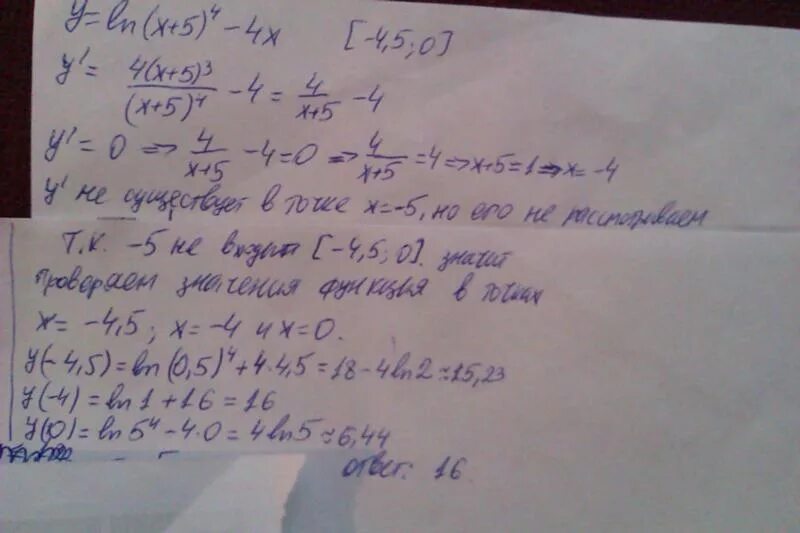 y=ln(x+5)⁴-4x [-4,5;0]
y'= 4(x+5)³/(x+5)⁴ -4 = 4/(x+5) -4
y'=0 => 4/(x+5) -4=0 => 4/(x+5) =4 => x+5=1 => x=-4
y' не существует в точке x=-5, но его не рассматриваем
т.к. -5 не входит [-4,5;0]. значит
проверяем значения функция в точках
x= -4,5; x=-4 и x=0.
y(-4,5)=ln(0,5)⁴+4·4,5=18-4ln2≈15,23
y(-4)=ln1+16=16
y(0)=ln5⁴-4·0=4ln5≈6,44
ответ: 16